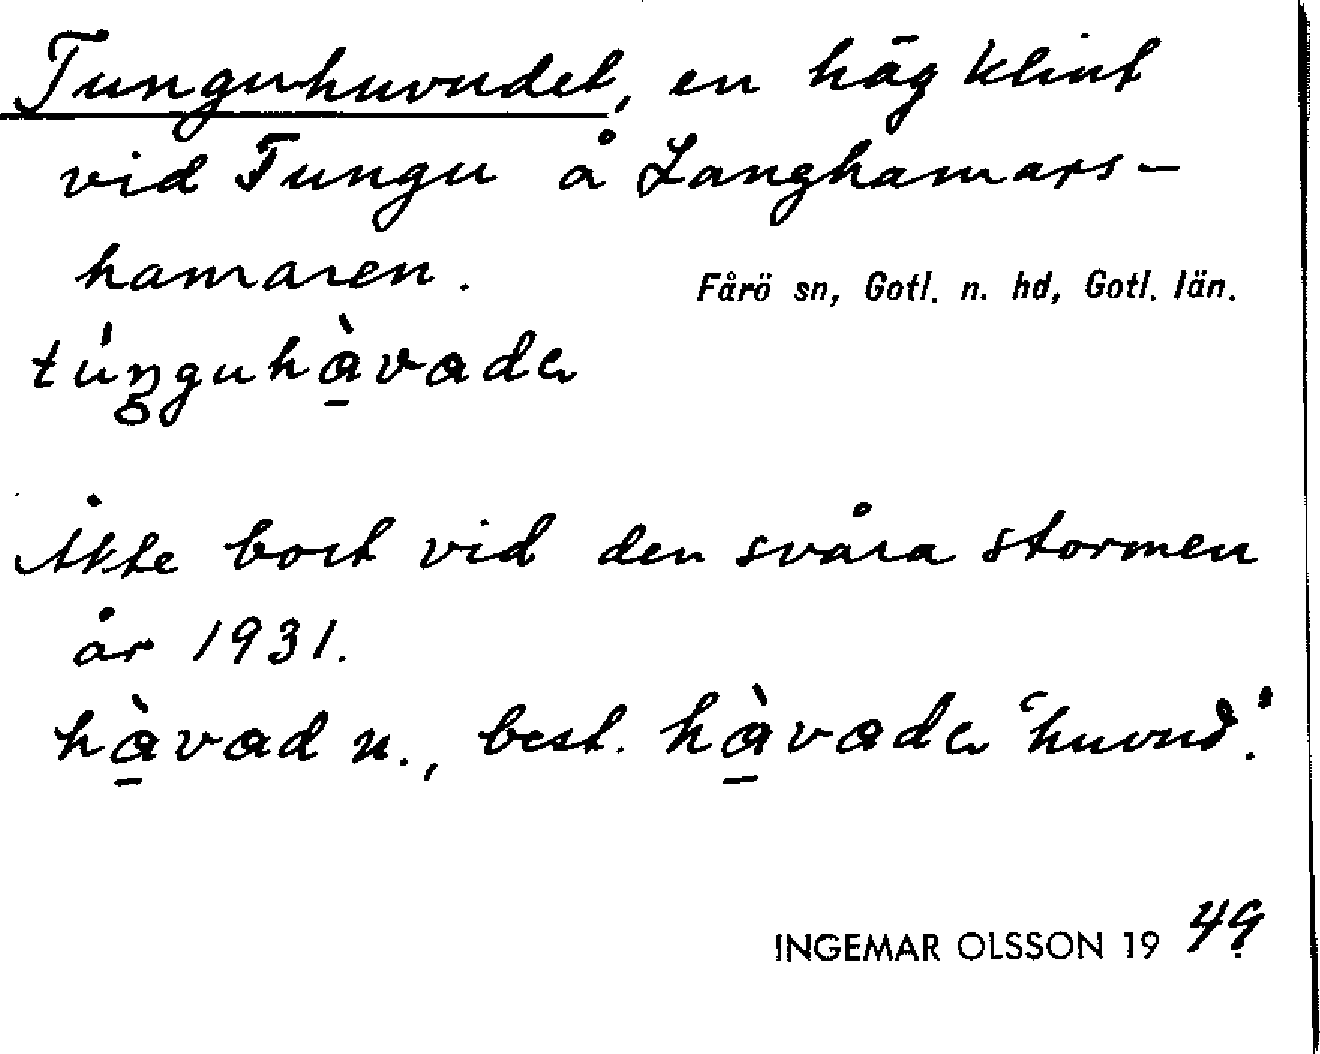 Tunguhuvudet, en hög klint
vid Tungu å Langhamars-
hamaren.
Fårö sn, Gotl. n. hd, Gotl. län.
túŋguhàvadə
Åkte bort vid den svåra stormen
år 1931.
hàvad n., best. hàvadə "huvud".
INGEMAR OLSSON 19 49